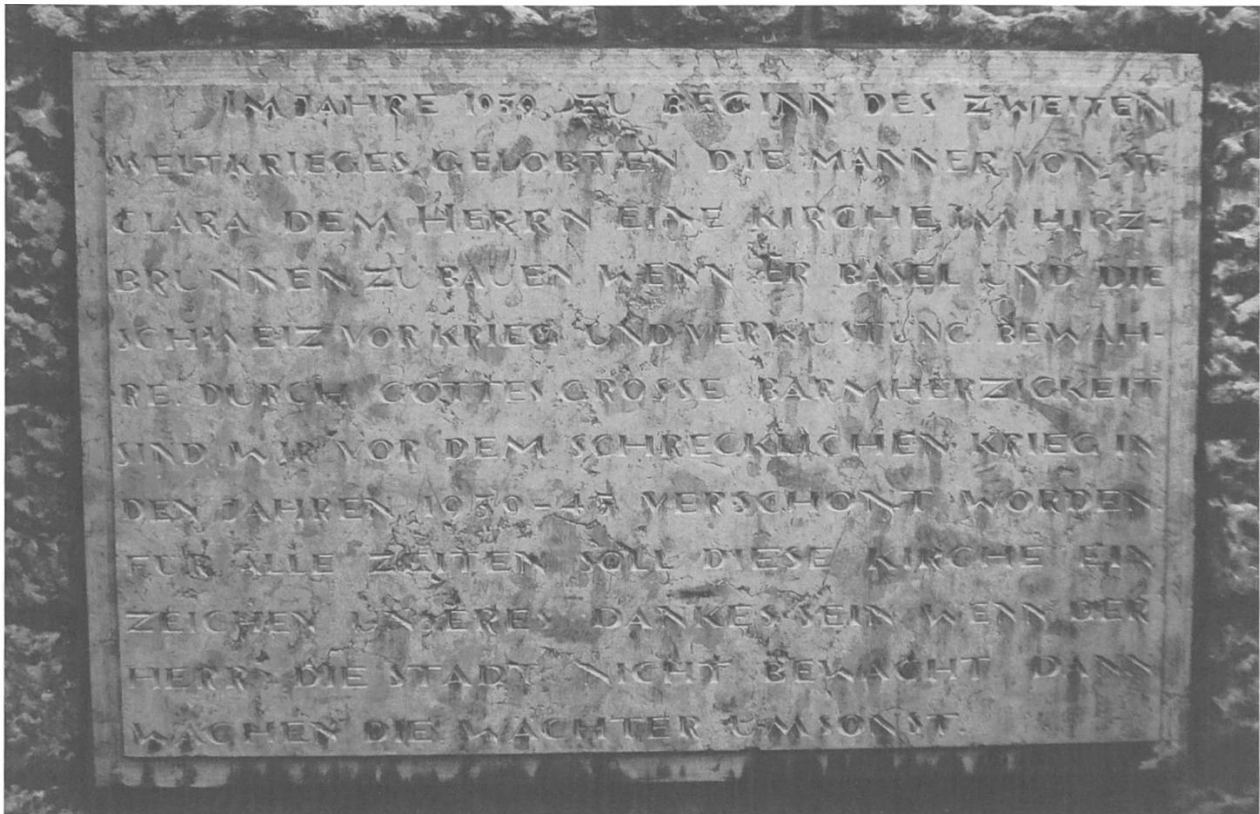 IM JAHRE 1939, ZU BEGINN DES ZWEITEN
WELTKRIEGES GELOBTEN DIE MÄNNER VON ST.
CLARA DEM HERRN EINE KIRCHE IM HIRZ-
BRUNNEN ZU BAUEN WENN ER BASEL UND DIE
SCHWEIZ VOR KRIEG UND VERWÜSTUNG BEWAH-
RE. DURCH GOTTES GROSSE BARMHERZIGKEIT
SIND WIR VOR DEM SCHRECKLICHEN KRIEG IN
DEN JAHREN 1939-45 VERSCHONT WORDEN.
FÜR ALLE ZEITEN SOLL DIESE KIRCHE EIN
ZEICHEN UNSERES DANKES SEIN. WENN DER
HERR DIE STADT NICHT BEWACHT DANN
WACHEN DIE WÄCHTER UMSONST.